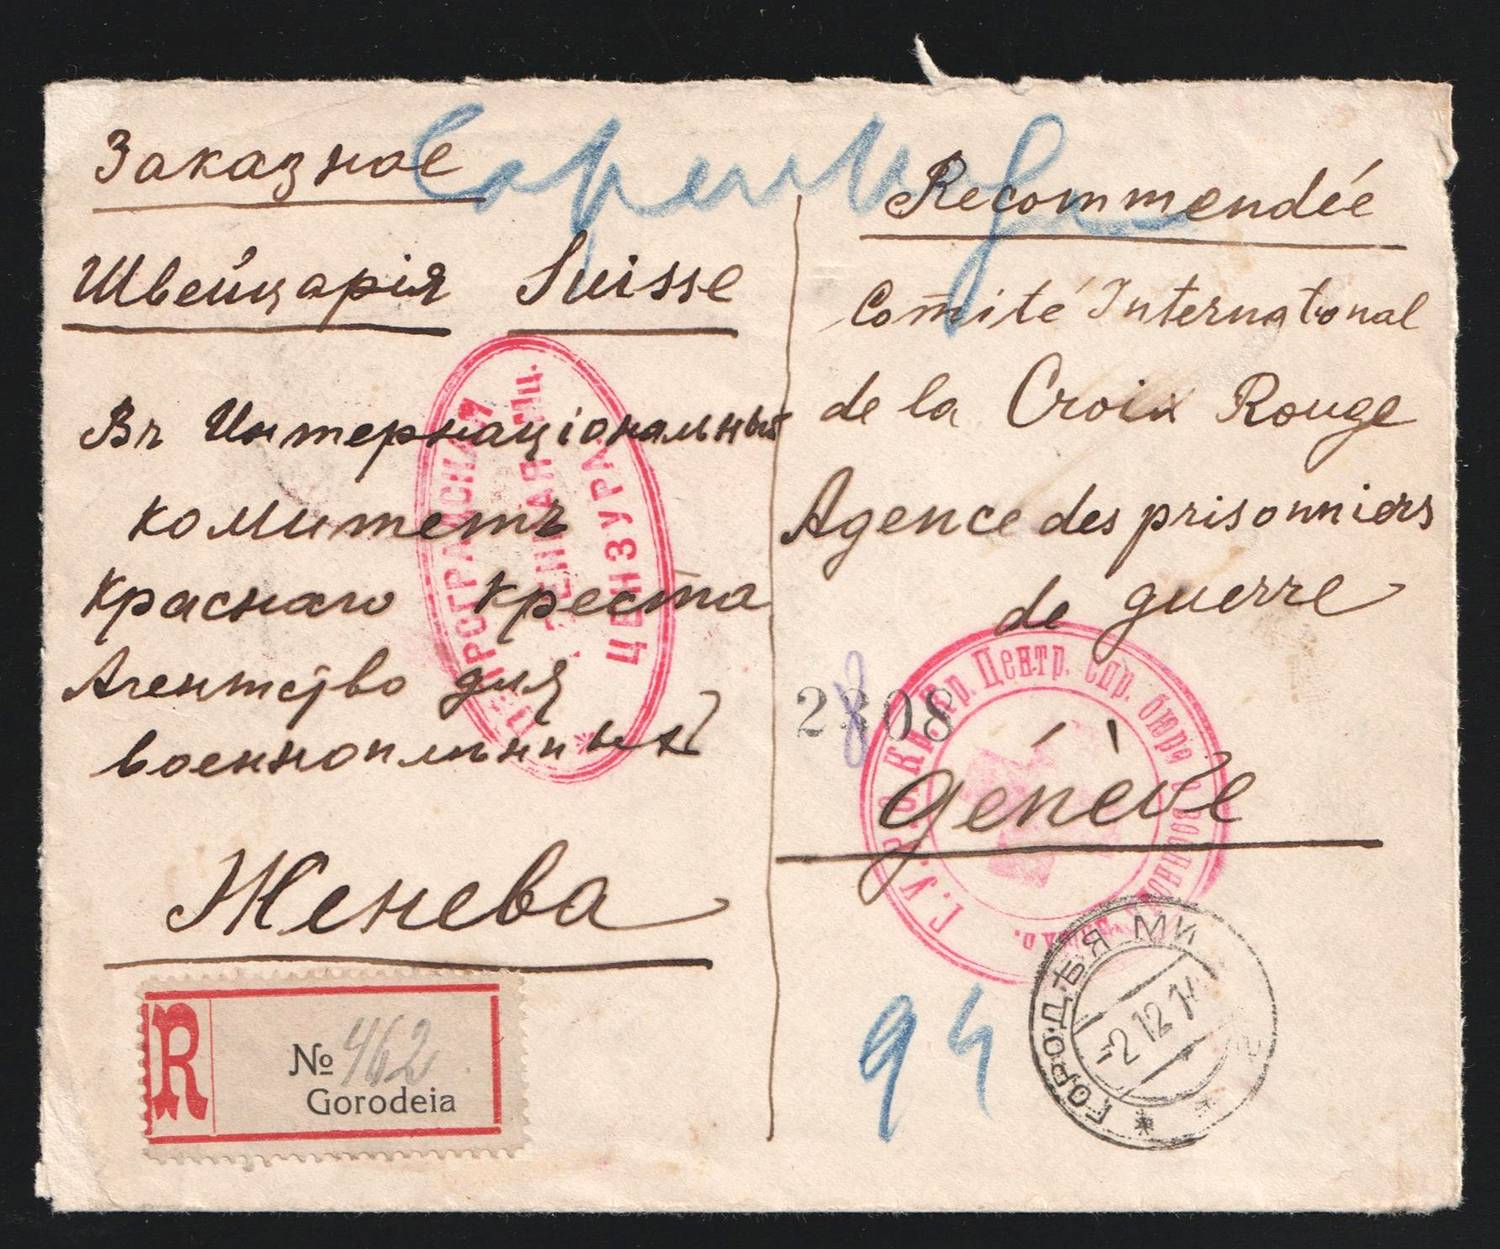 Заказное
Швейцарія Suisse
Въ Интернаціональный
комитетъ
Краснаго Креста
Агентство для
военноплѣнныхъ
Женева
Recommendée
Comité International
de la Croix Rouge
Agence des prisonniers
de guerre
Génève
ПЕТРОГРАДСКАЯ
ВОЕННАЯ
ЦЕНЗУРА
2808
Центр. Спр. бюро о военно
94
ГОРОДѢЯ МИ
-2 12 1
R
№ 462
Gorodeia